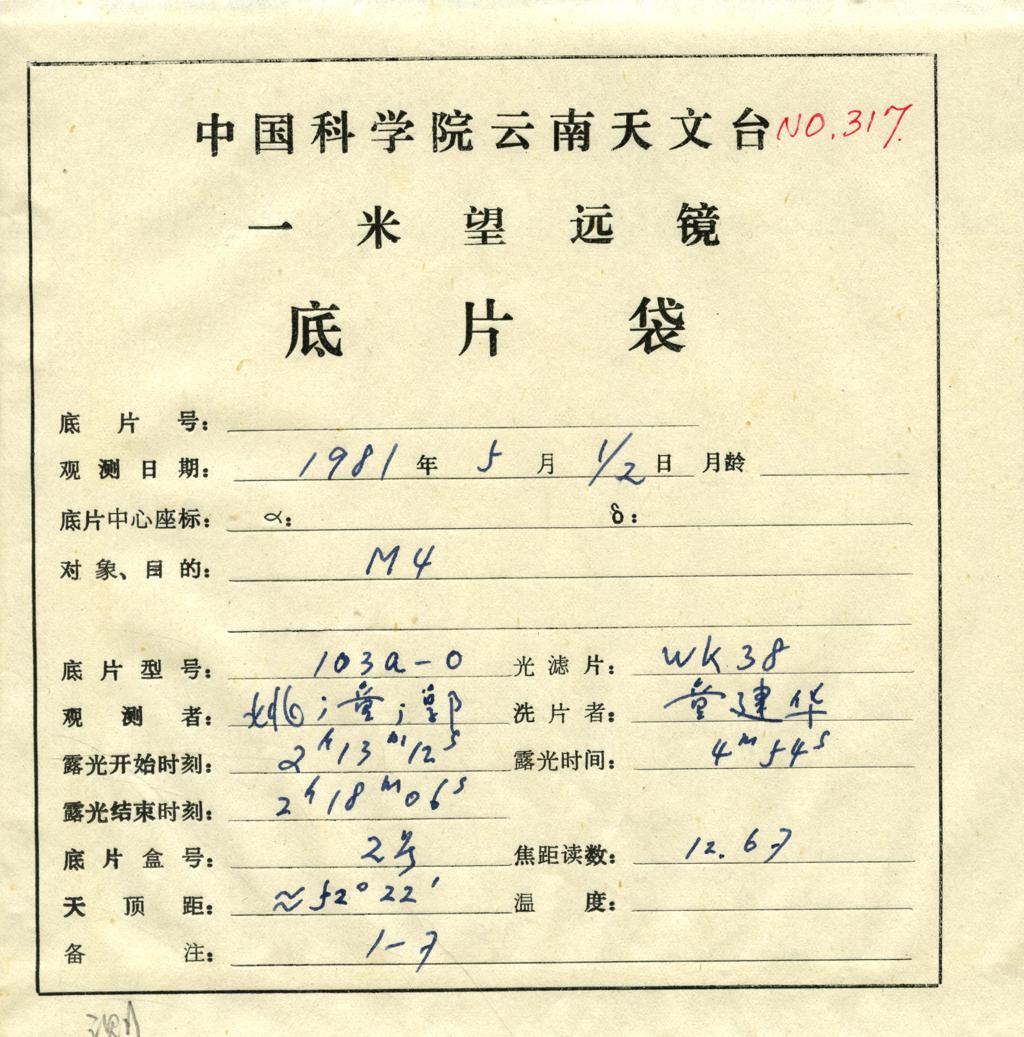 中国科学院云南天文台 NO.317.
一米望远镜
底片袋
底片号：
观测日期： 1981 年 5 月 1/2 日 月龄
底片中心座标： α： δ：
对象、目的： M4
底片型号： 103a-O 光滤片： WK38
观测者： 姚；童；郭 洗片者： 童建华
露光开始时刻： 2h13m12s 露光时间： 4m54s
露光结束时刻： 2h18m06s
底片盒号： 2号 焦距读数： 12.67
天顶距： ≈52°22′ 温度：
备注： 1-7
测